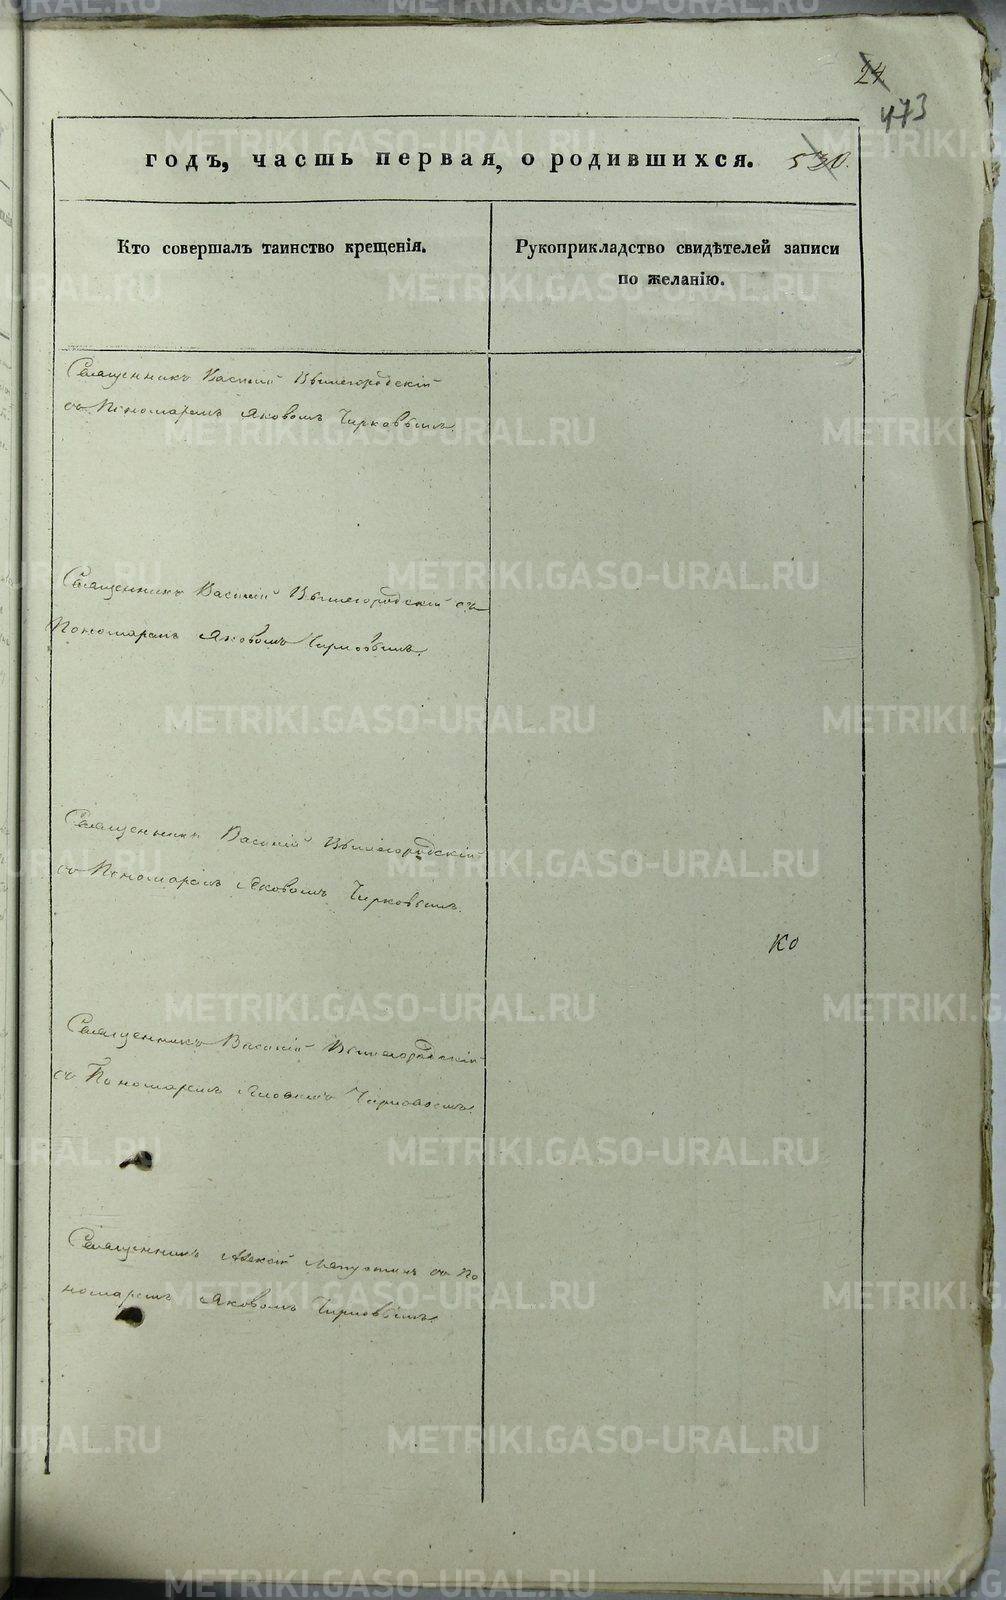 24
473
годъ, часть первая, о родившихся. 530.
Кто совершалъ таинство крещенія.
Рукоприкладство свидѣтелей записи
по желанію.
Священникъ Василій Вышегородскій
съ Пономаремъ Яковомъ Чирковымъ.
Священникъ Василій Вышегородскій съ
Пономаремъ Яковомъ Чирковымъ.
Священникъ Василій Вышегородскій
съ Пономаремъ Яковомъ Чирковымъ.
КО
Священникъ Василій Вышегородскій
съ Пономаремъ Яковомъ Чирковымъ.
Священникъ Алексій съ По
номаремъ Яковомъ Чирковымъ.
METRIKI.GASO-URAL.RU